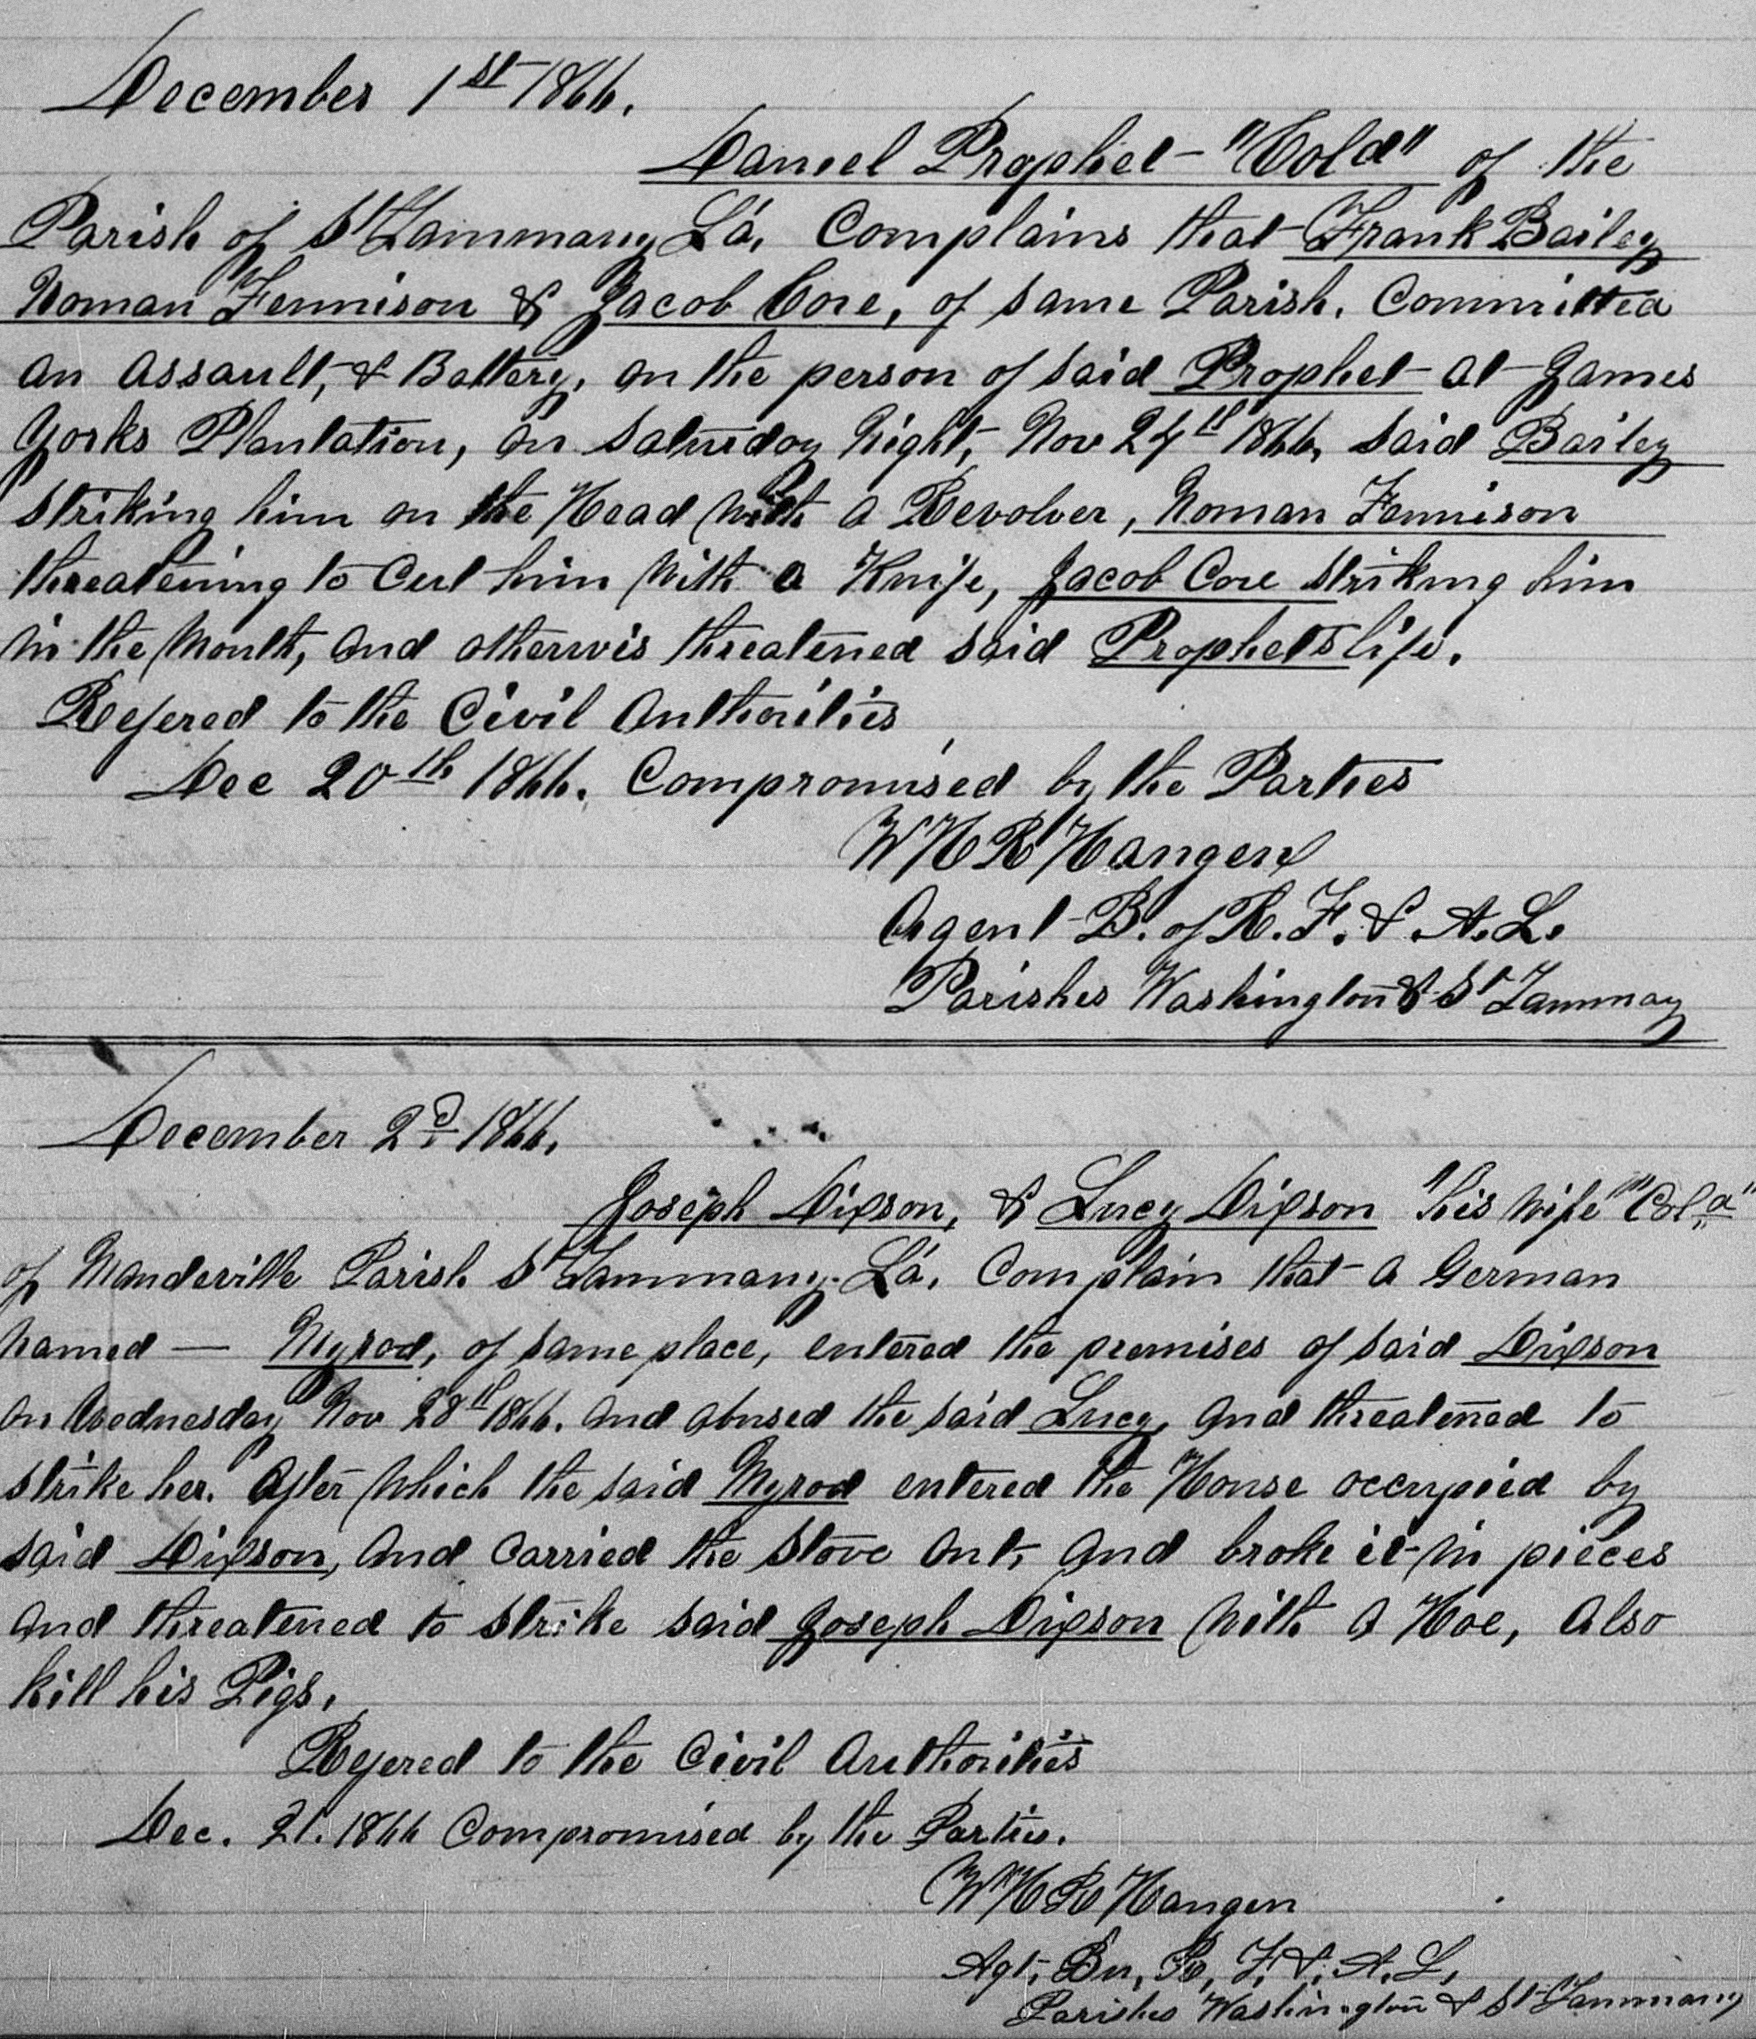 December 1st 1866.
Daniel Prophet "Cold" of the
Parish of St Tammany La, Complains that Frank Bailey
Noman Fennison & Jacob Core, of same Parish. Committed
an assault, & Battery, on the person of said Prophet at James
Yorks Plantation, on Saturday Night, Nov 24th 1866, said Bailey
striking him on the Head with a Revolver, Noman Fennison
threatening to Cut him with a Knife, Jacob Core striking him
in the Mouth, and otherwis threatened said Prophets life.
Refered to the Civil Authorities
Dec 20th 1866. Compromised by the Parties
W H R Hangen
Agent B. of R. F. & A. L.
Parishes Washington & St Tammay
December 2d 1866.
Joseph Dixson, & Lucy Dixson "his wife" "Cold"
of Mandeville Parish St Tammany. La, Complain that a German
named — Myrod, of same place, entered the premises of said Dixson
on Wednesday Nov 28th 1866. and abused the said Lucy, and threatened to
strike her. After which the said Myrod entered the House occupied by
said Dixson, and carried the Stove out, and broke it in pieces
and threatened to strike said Joseph Dixson with a Hoe, Also
kill his Pigs.
Refered to the Civil Authorities
Dec. 21. 1866 Compromised by the Parties.
W H R Hangen
Agt, Bu, R, F, &. A. L,
Parishes Washington & St Tammany